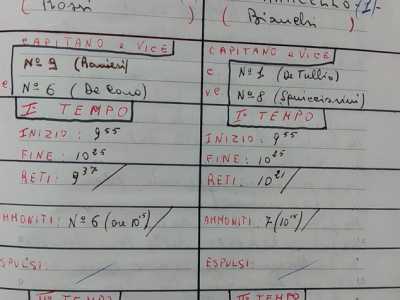 ( Rossi
( Bianchi )
CAPITANO e VICE
Nº 9 (Ranieri)
Nº 6 (De
Iº TEMPO
INIZIO: 9 55
FINE: 10 25
RETI: 9 37 /
AMMONITI: Nº 6 (ore 10 15) /
ESPULSI: /
IIº TEMPO
CAPITANO e VICE
C Nº 1 (De Tullio)
VC Nº 8 (
Iº TEMPO
INIZIO: 9 55
FINE: 10 25
RETI: 10 21 /
AMMONITI: 7 (10 15) /
ESPULSI: /
IIº TEMPO